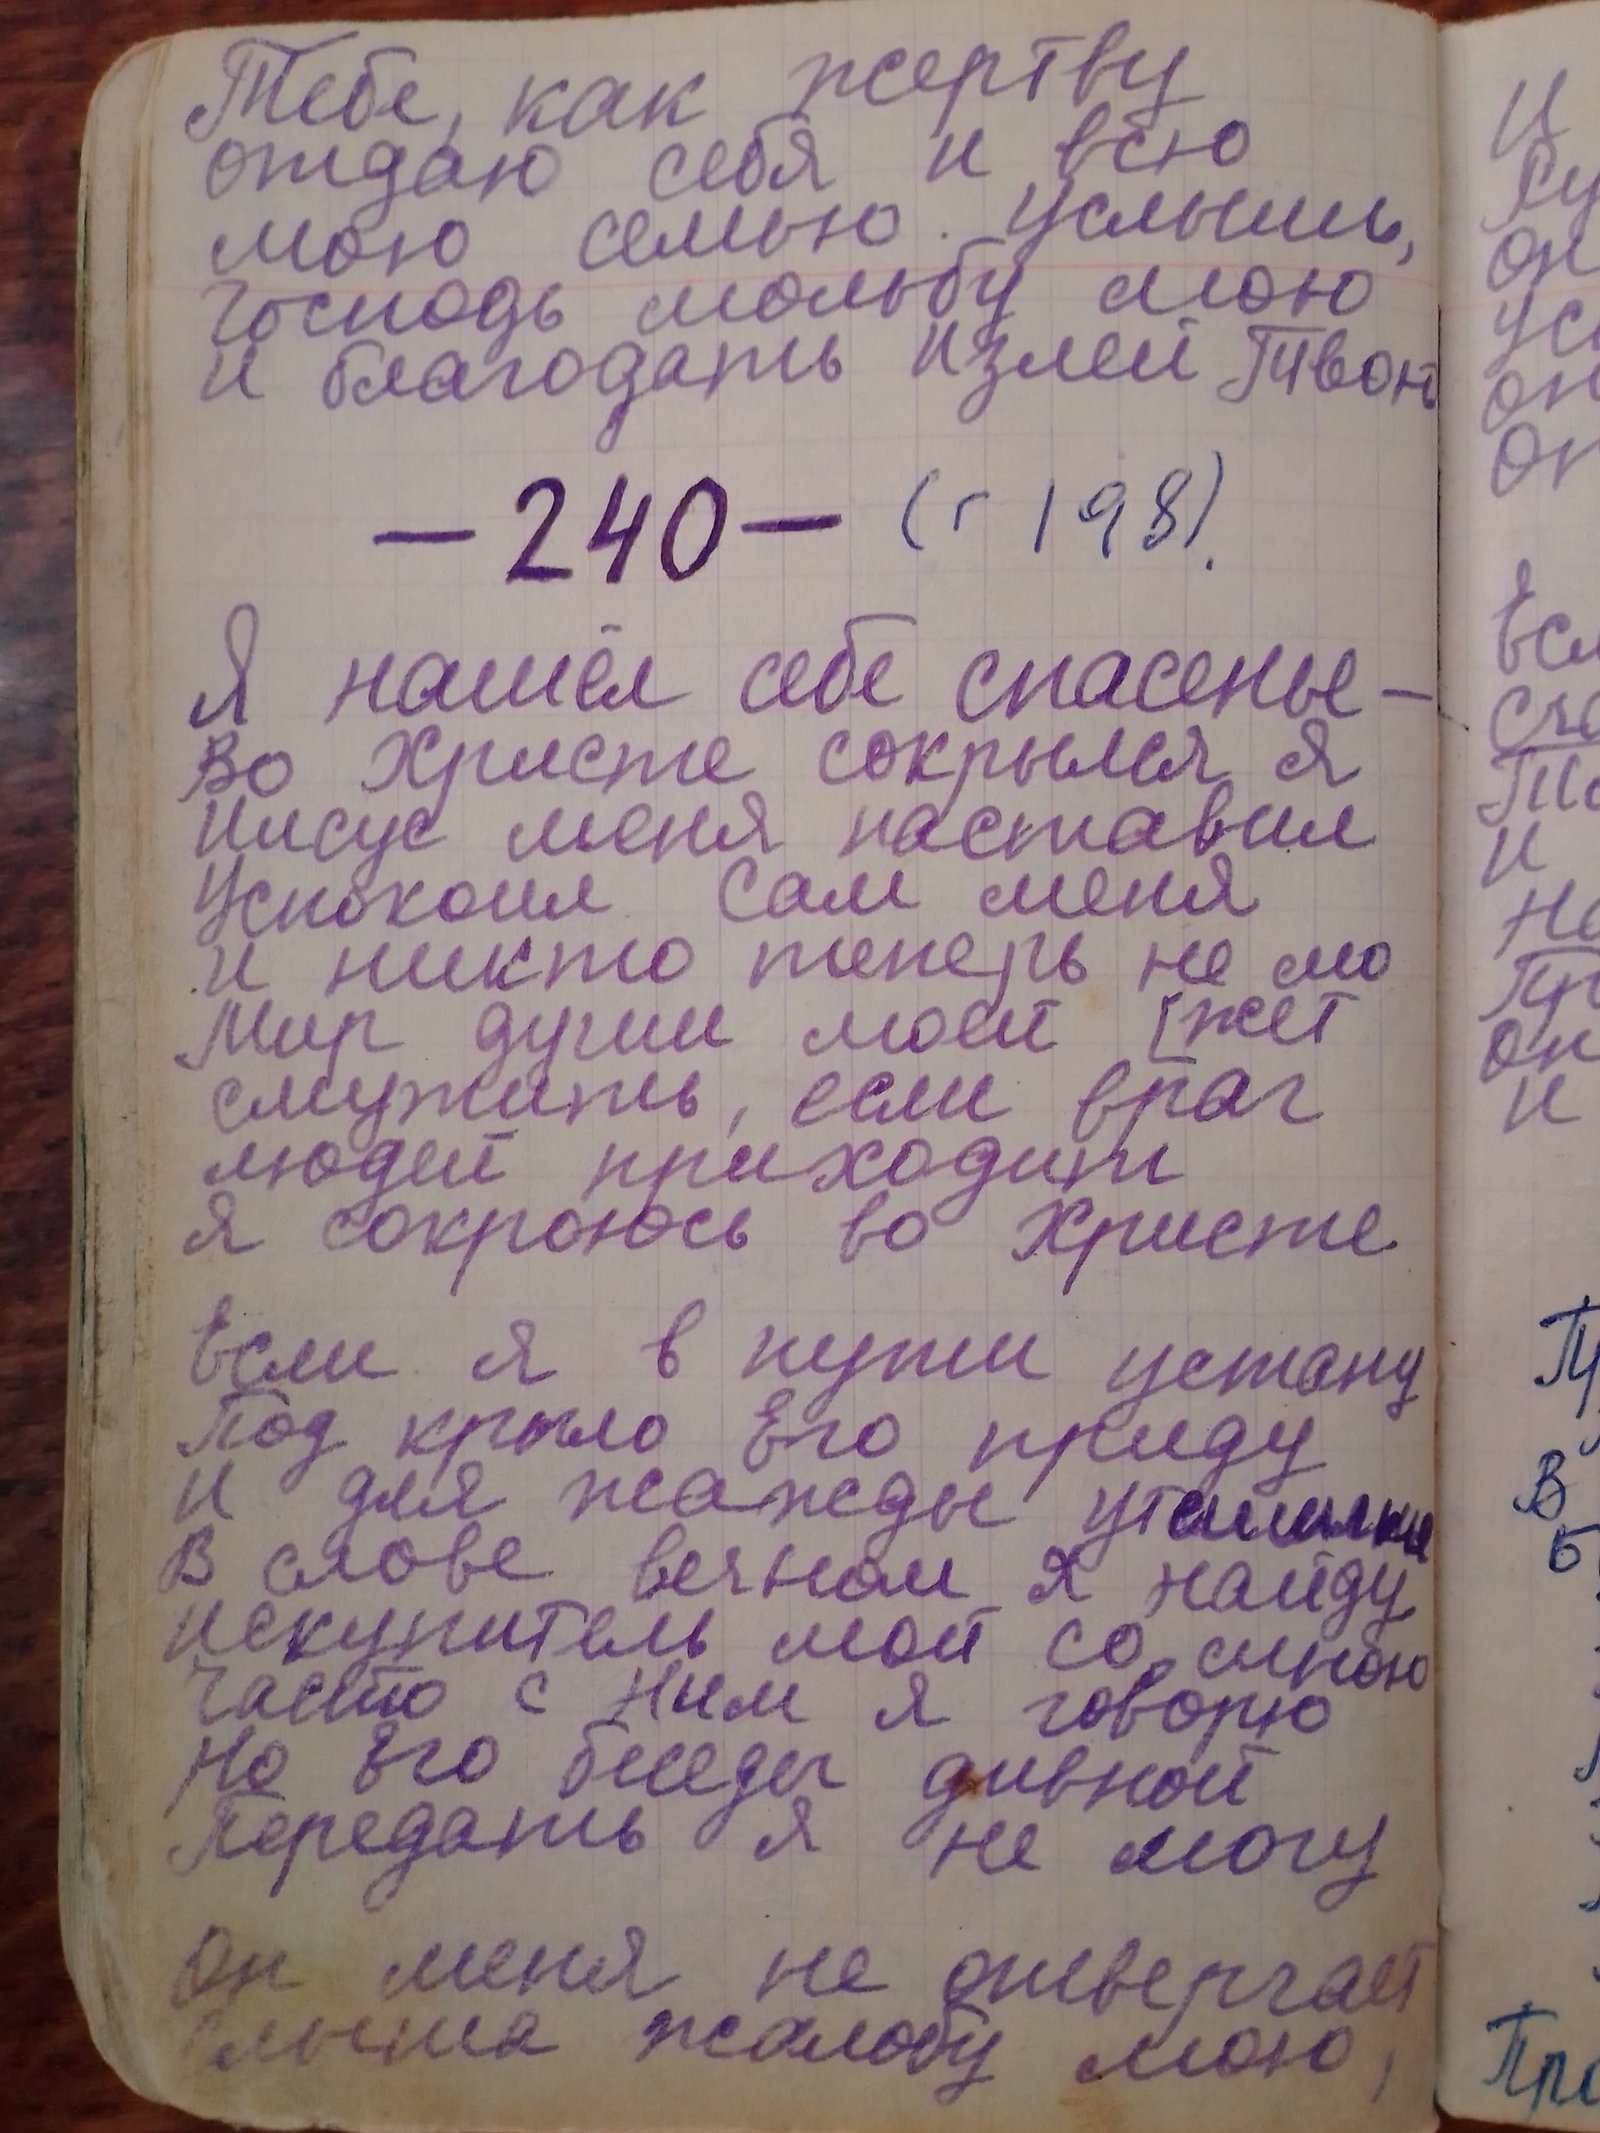 Тебе, как жертву
отдаю себя и всю
мою семью. Услышь,
Господь мольбу мою
и благодать излей Твою
— 240 — (г 198).
Я нашёл себе спасенье —
Во Христе сокрылся я
Иисус меня наставил
Успокоил Сам меня
и никто теперь не мо
Мир души моей [жет
смужить, если враг
людей приходит
я сокроюсь во Христе
Если я в пути устану
Под крыло Его приду
И для жажды
В слове вечном я найду
Искупитель мой со мною
Часто с Ним я говорю
Но Его беседы дивной
Передать я не могу
Он меня не отвергает
Слыша жалобу мою,
И
он
он
Если
И
он
И
В